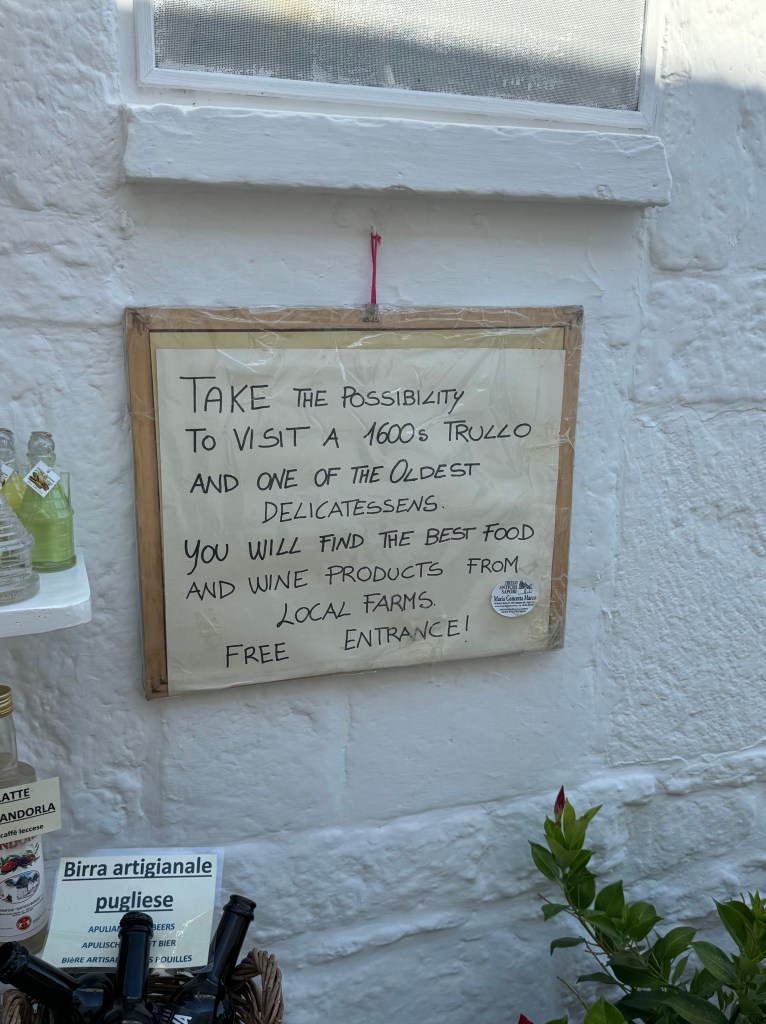 TAKE THE POSSIBILITY
TO VISIT A 1600s TRULLO
AND ONE OF THE OLDEST
DELICATESSENS.
YOU WILL FIND THE BEST FOOD
AND WINE PRODUCTS FROM
LOCAL FARMS.
FREE ENTRANCE!
TRULLO
ANTICHI
SAPORI
Maria Concetta Marco
LATTE
ANDORLA
caffè leccese
Birra artigianale
pugliese
APULIAN BEERS
APULISCH T BIER
BIèRE ARTISA S POUILLES